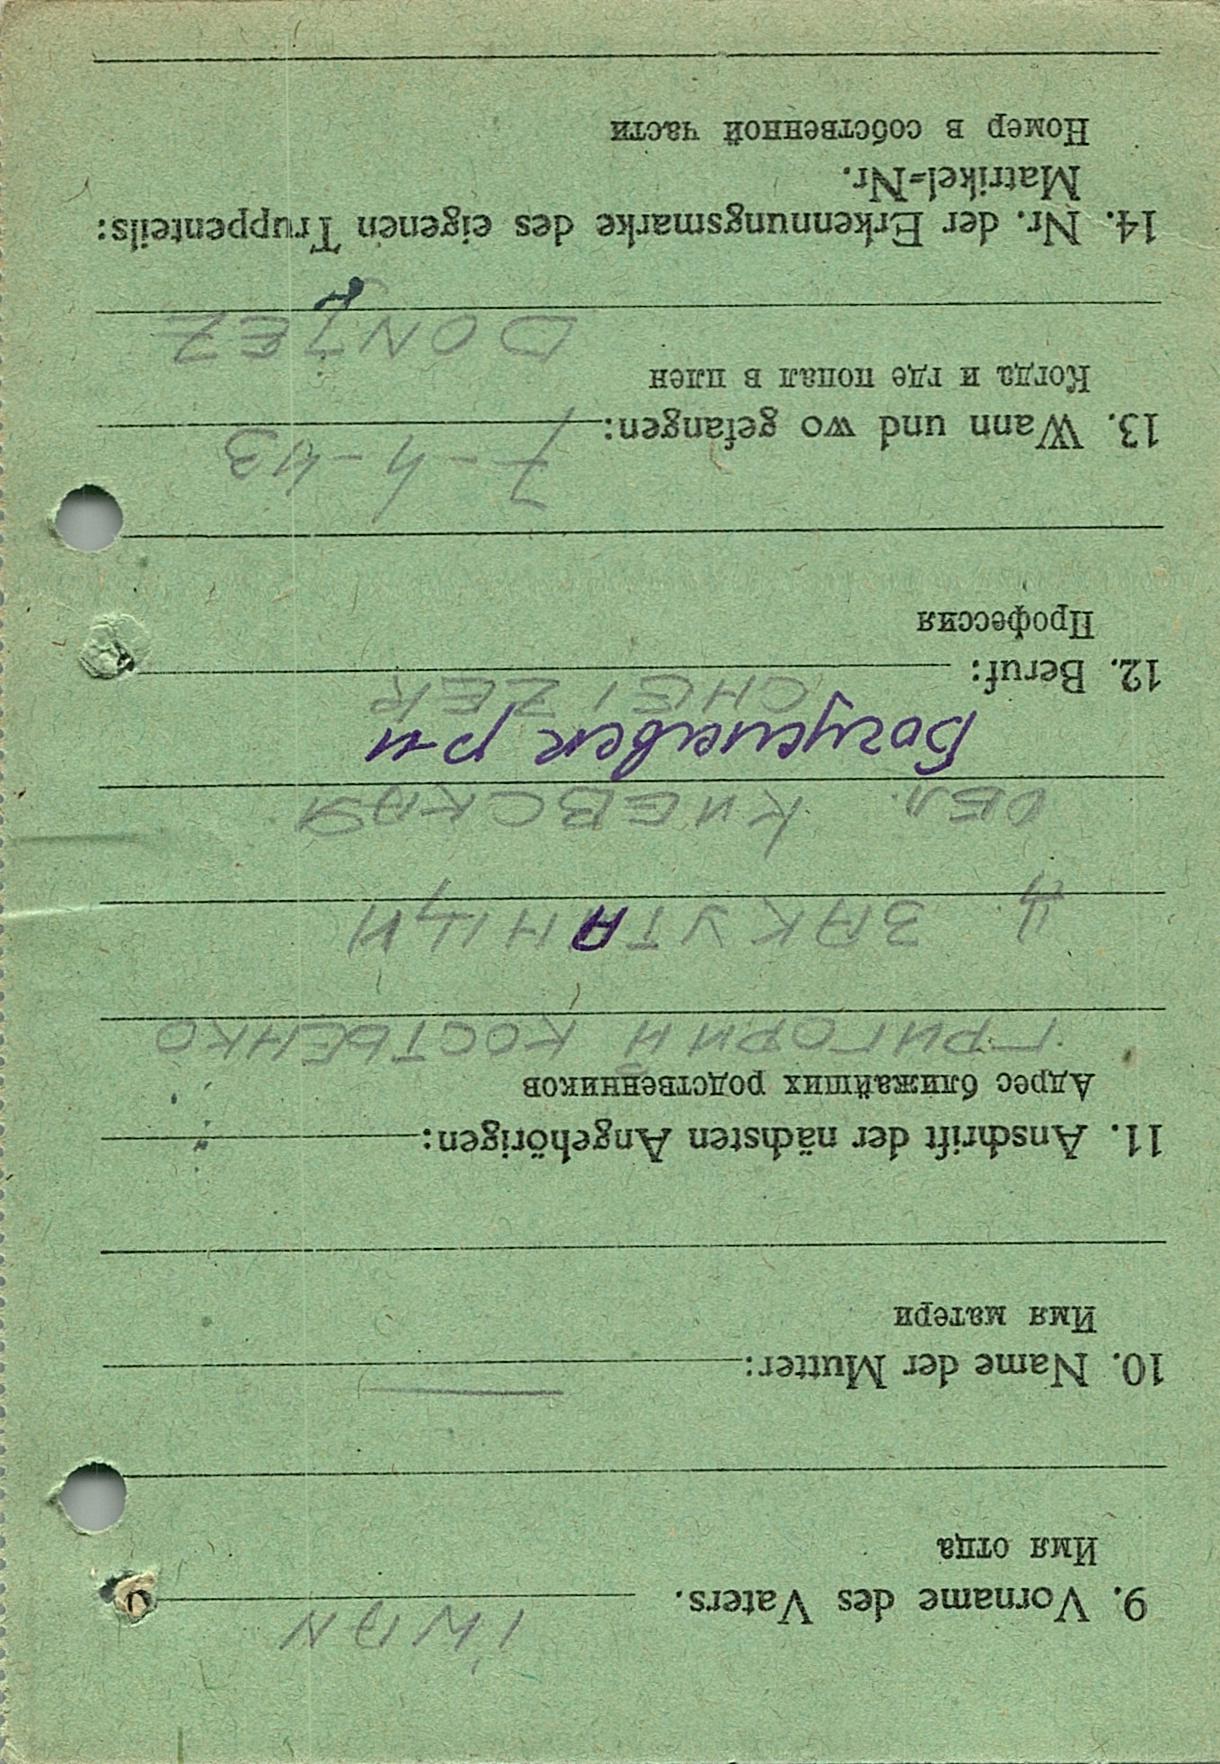 9. Vorname des Vaters. IWAN
Имя отца
10. Name der Mutter: —
Имя матери
11. Anschrift der nächsten Angehörigen:
Адрес ближайших родственников
ГРИГОРИЙ КОСТЬЕНКО
Ц ЗАКУТАНЦИ
ОБЛ. КИЕВСКАЯ
Богуславск р-н
12. Beruf: CHEIZER
Профессия
13. Wann und wo gefangen: 7-4-43
Когда и где попал в плен
DONJEZ
14. Nr. der Erkennungsmarke des eigenen Truppenteils:
Matrikel=Nr.
Номер в собственной части